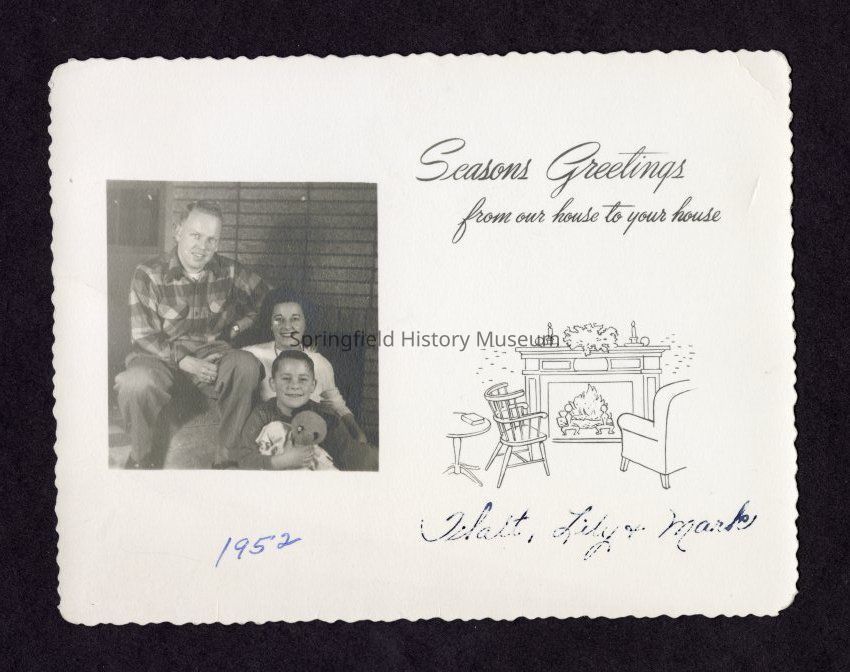 Seasons Greetings
from our house to your house
Springfield History Museum
Walt, Lily & Mark
1952